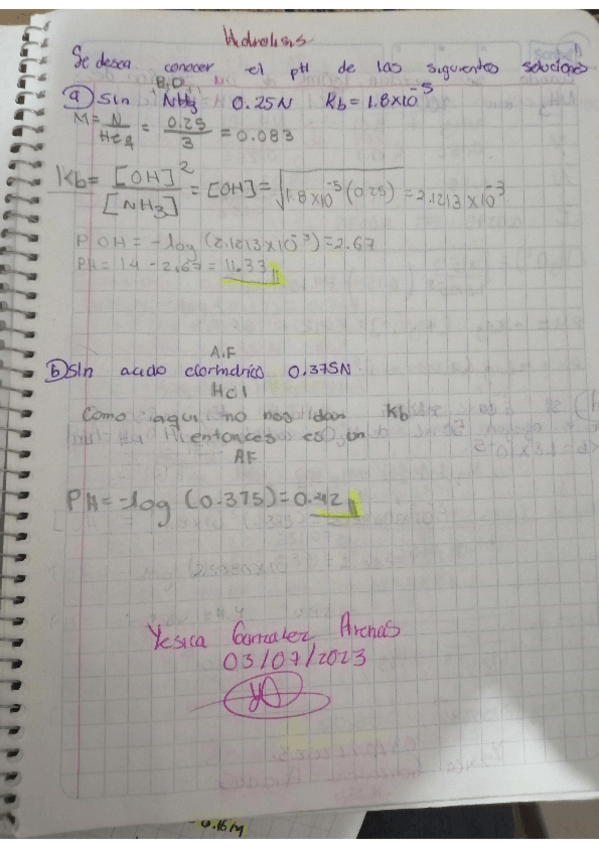 Hidrolisis
Se desea conocer el pH de las siguientes soluciones
B.D
a) Sln NH3 0.25N Kb = 1.8x10^-5
M = N/Heq = 0.25/3 = 0.083
Kb = [OH]^2/[NH3] = [OH] = √1.8x10^-5(0.25) = 2.1213x10^-3
POH = -log (2.1213x10^-3) = 2.67
PH = 14 - 2.67 = 11.33
A.F
b) Sln acido clorhidrico 0.375N
HCl
Como aqui no nos dan Kb
entonces es un
AF
PH = -log (0.375) = 0.42
Yesica Gonzalez Arenas
03/07/2023
-0.16M